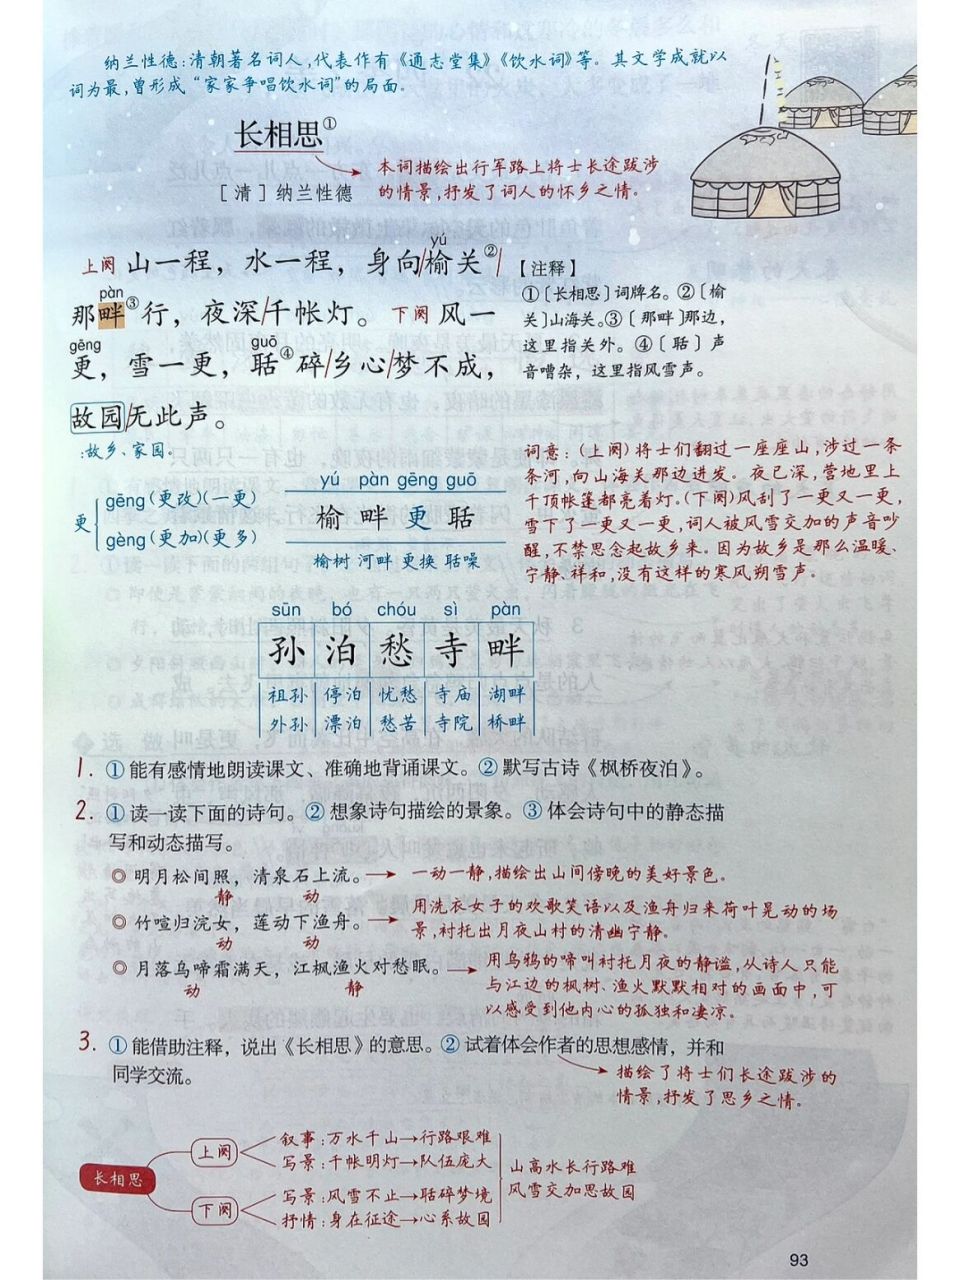 纳兰性德:清朝著名词人,代表作有《通志堂集》《饮水词》等。其文学成就以
词为最,曾形成“家家争唱饮水词”的局面。
长相思①
本词描绘出行军路上将士长途跋涉
的情景,抒发了词人的怀乡之情。
[清]纳兰性德
yú
上阕 山一程，水一程，身向/榆关②/
pàn
那畔③行，夜深/千帐灯。下阕 风一
gēng guō
更，雪一更，聒④碎/乡心/梦不成，
故园/无此声。
:故乡、家园。
【注释】
①〔长相思〕词牌名。②〔榆
关〕山海关。③〔那畔〕那边，
这里指关外。④〔聒〕声
音嘈杂，这里指风雪声。
更
gēng(更改)(一更)
gèng(更加)(更多)
yú pàn gēng guō
榆 畔 更 聒
榆树 河畔 更换 聒噪
词意:(上阕)将士们翻过一座座山,涉过一条
条河,向山海关那边进发。夜已深,营地里上
千顶帐篷都亮着灯。(下阕)风刮了一更又一更,
雪下了一更又一更,词人被风雪交加的声音吵
醒,不禁思念起故乡来。因为故乡是那么温暖、
宁静、祥和,没有这样的寒风朔雪声。
sūn bó chóu sì pàn
孙 泊 愁 寺 畔
祖孙 停泊 忧愁 寺庙 湖畔
外孙 漂泊 愁苦 寺院 桥畔
1. ①能有感情地朗读课文、准确地背诵课文。②默写古诗《枫桥夜泊》。
2. ①读一读下面的诗句。②想象诗句描绘的景象。③体会诗句中的静态描
写和动态描写。
◎ 明月松间照，清泉石上流。→ 一动一静,描绘出山间傍晚的美好景色。
静 动
◎ 竹喧归浣女，莲动下渔舟。→ 用洗衣女子的欢歌笑语以及渔舟归来荷叶晃动的场
景,衬托出月夜山村的清幽宁静。
动 动
◎ 月落乌啼霜满天，江枫渔火对愁眠。→ 用乌鸦的啼叫衬托月夜的静谧,从诗人只能
与江边的枫树、渔火默默相对的画面中,可
以感受到他内心的孤独和凄凉。
动 静
3. ①能借助注释，说出《长相思》的意思。②试着体会作者的思想感情，并和
同学交流。
描绘了将士们长途跋涉的
情景,抒发了思乡之情。
长相思
上阕
叙事:万水千山→行路艰难
写景:千帐明灯→队伍庞大
下阕
写景:风雪不止→聒碎梦境
抒情:身在征途→心系故园
山高水长行路难
风雪交加思故园
93